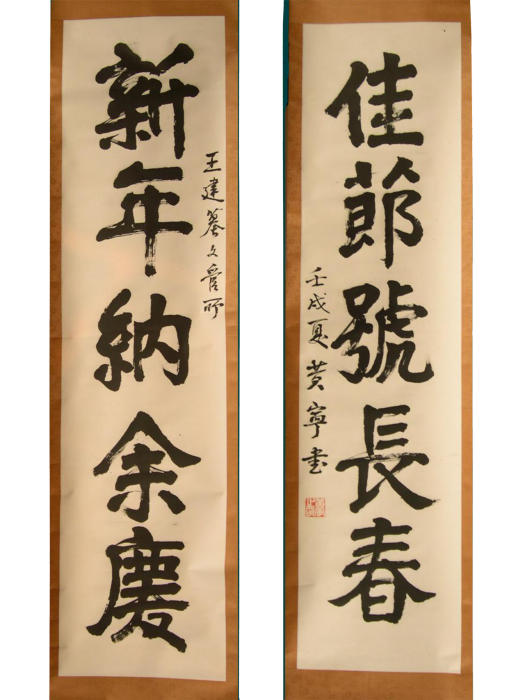 王建墓文管所
新年納余慶
佳莭號長春
壬戌夏黄寧書